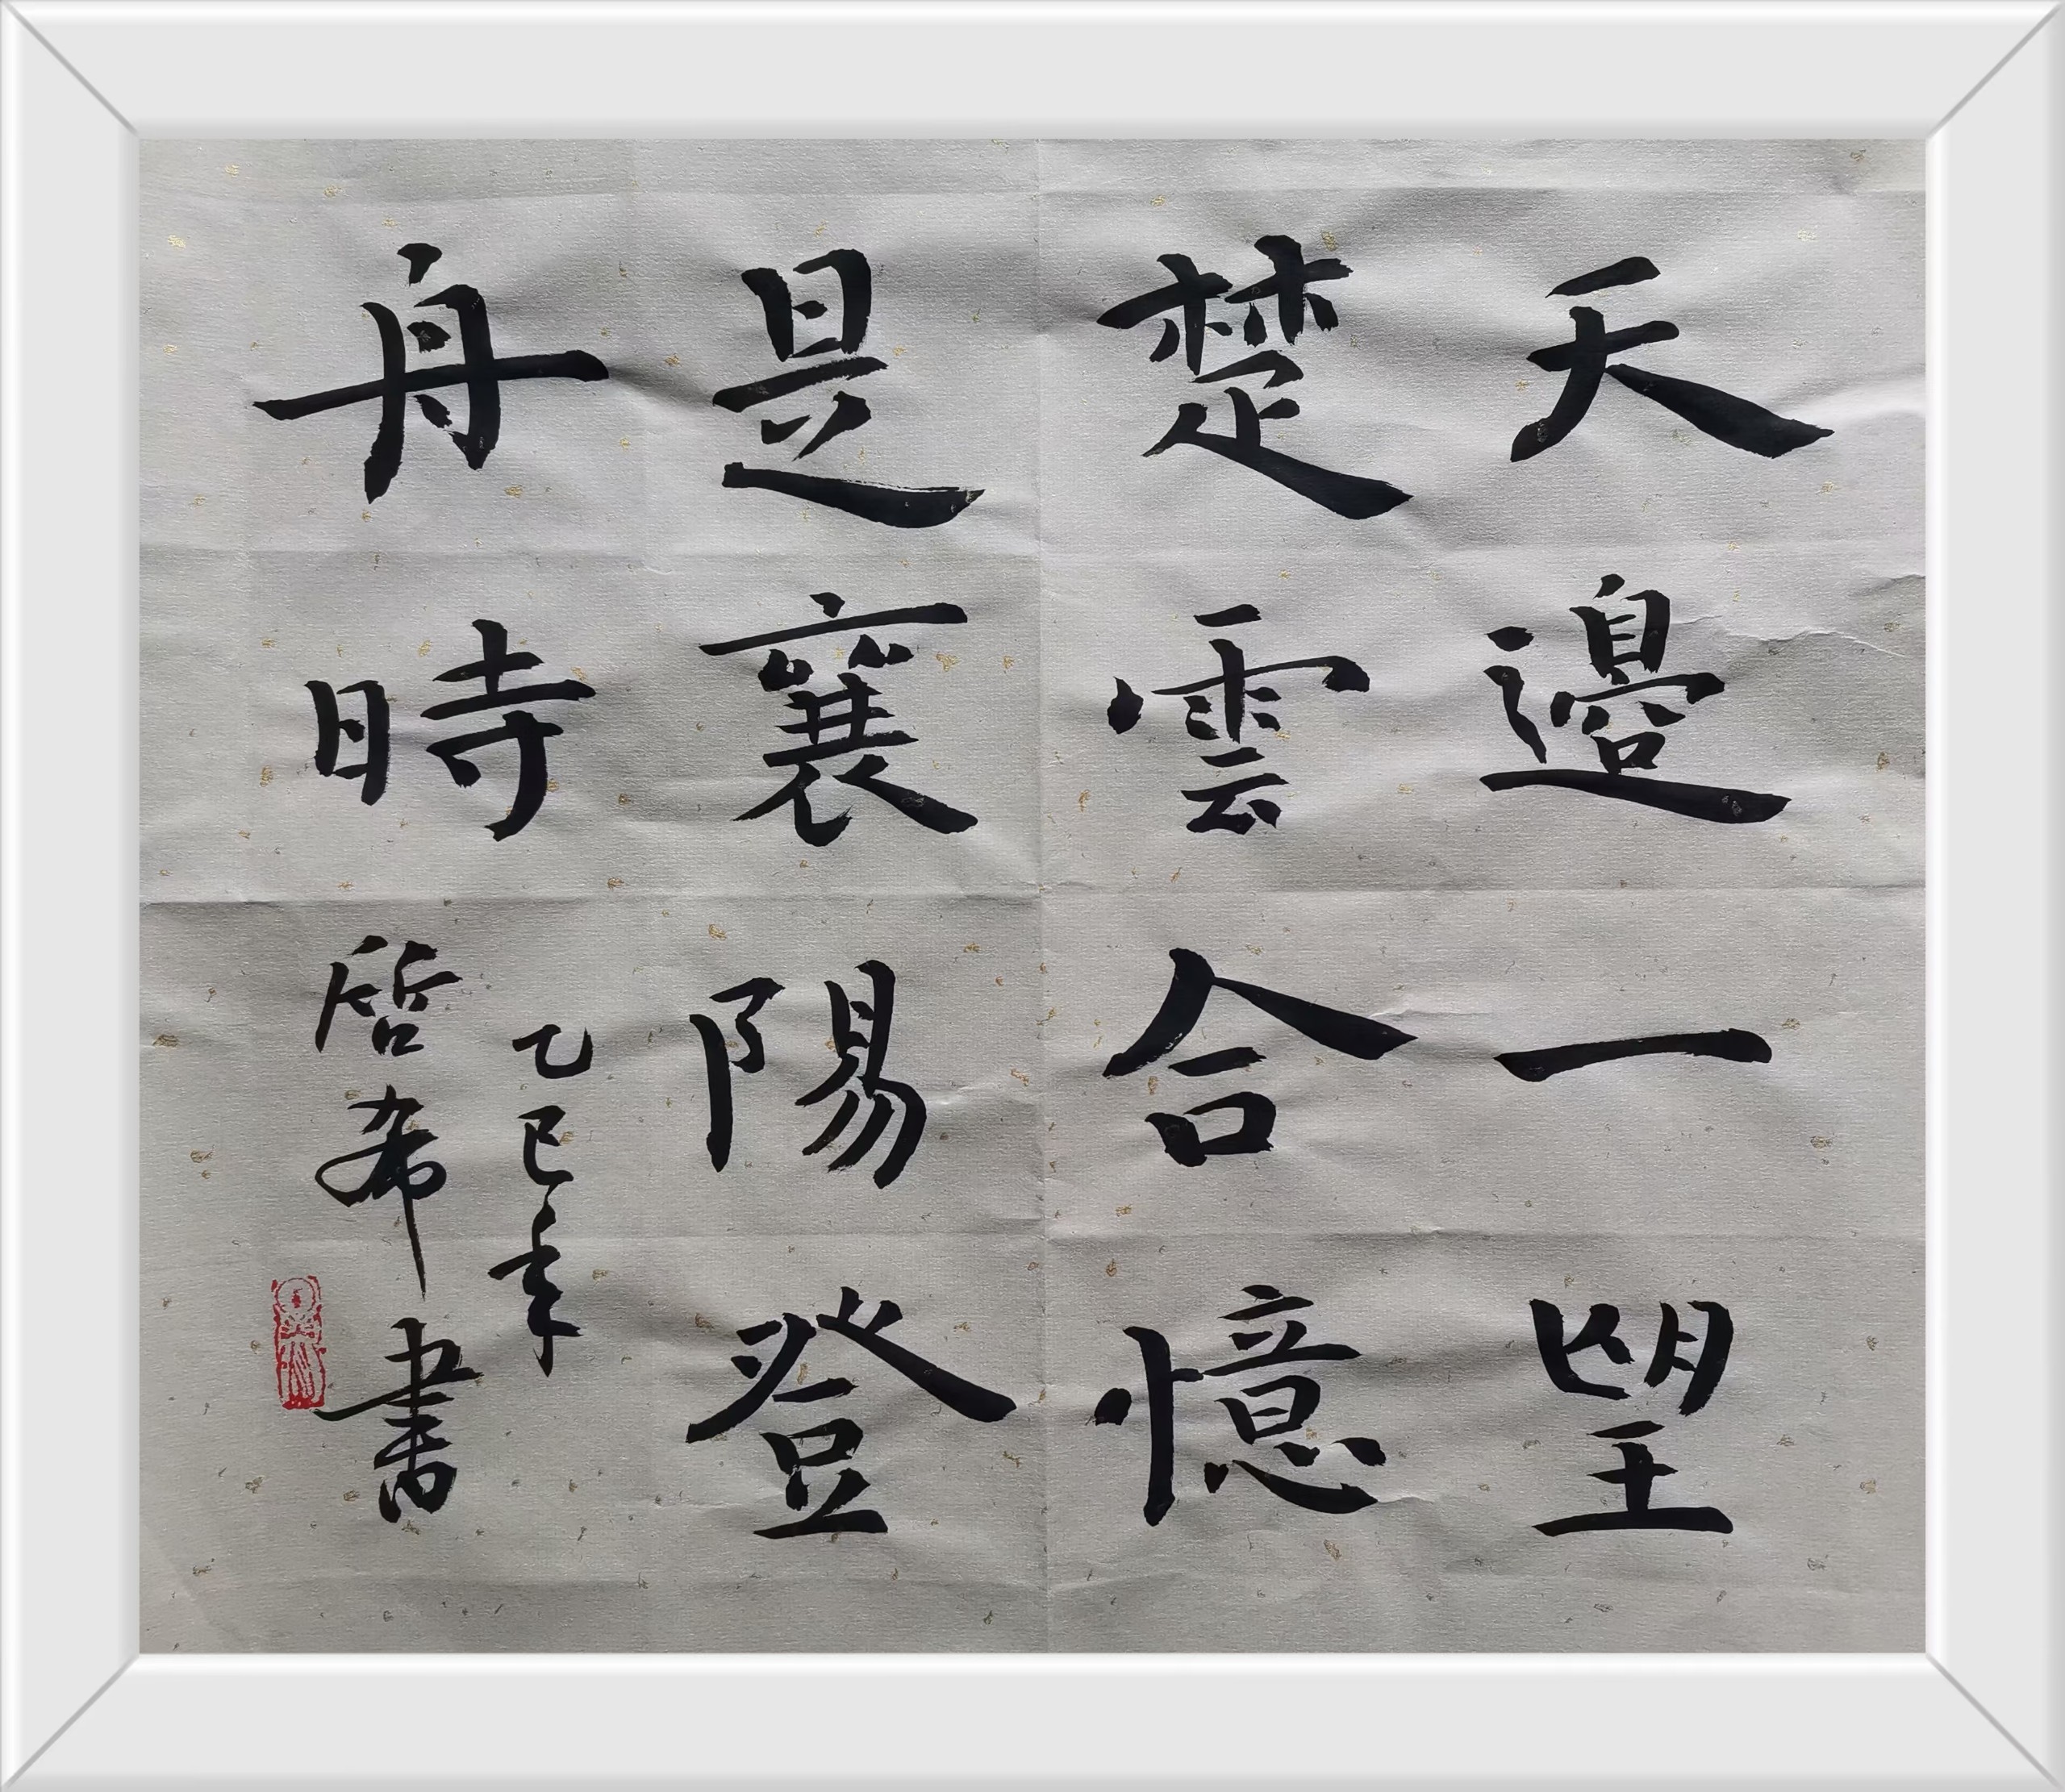 天邊一望
楚雲合憶
是襄陽登
舟時
乙巳年
啓希書